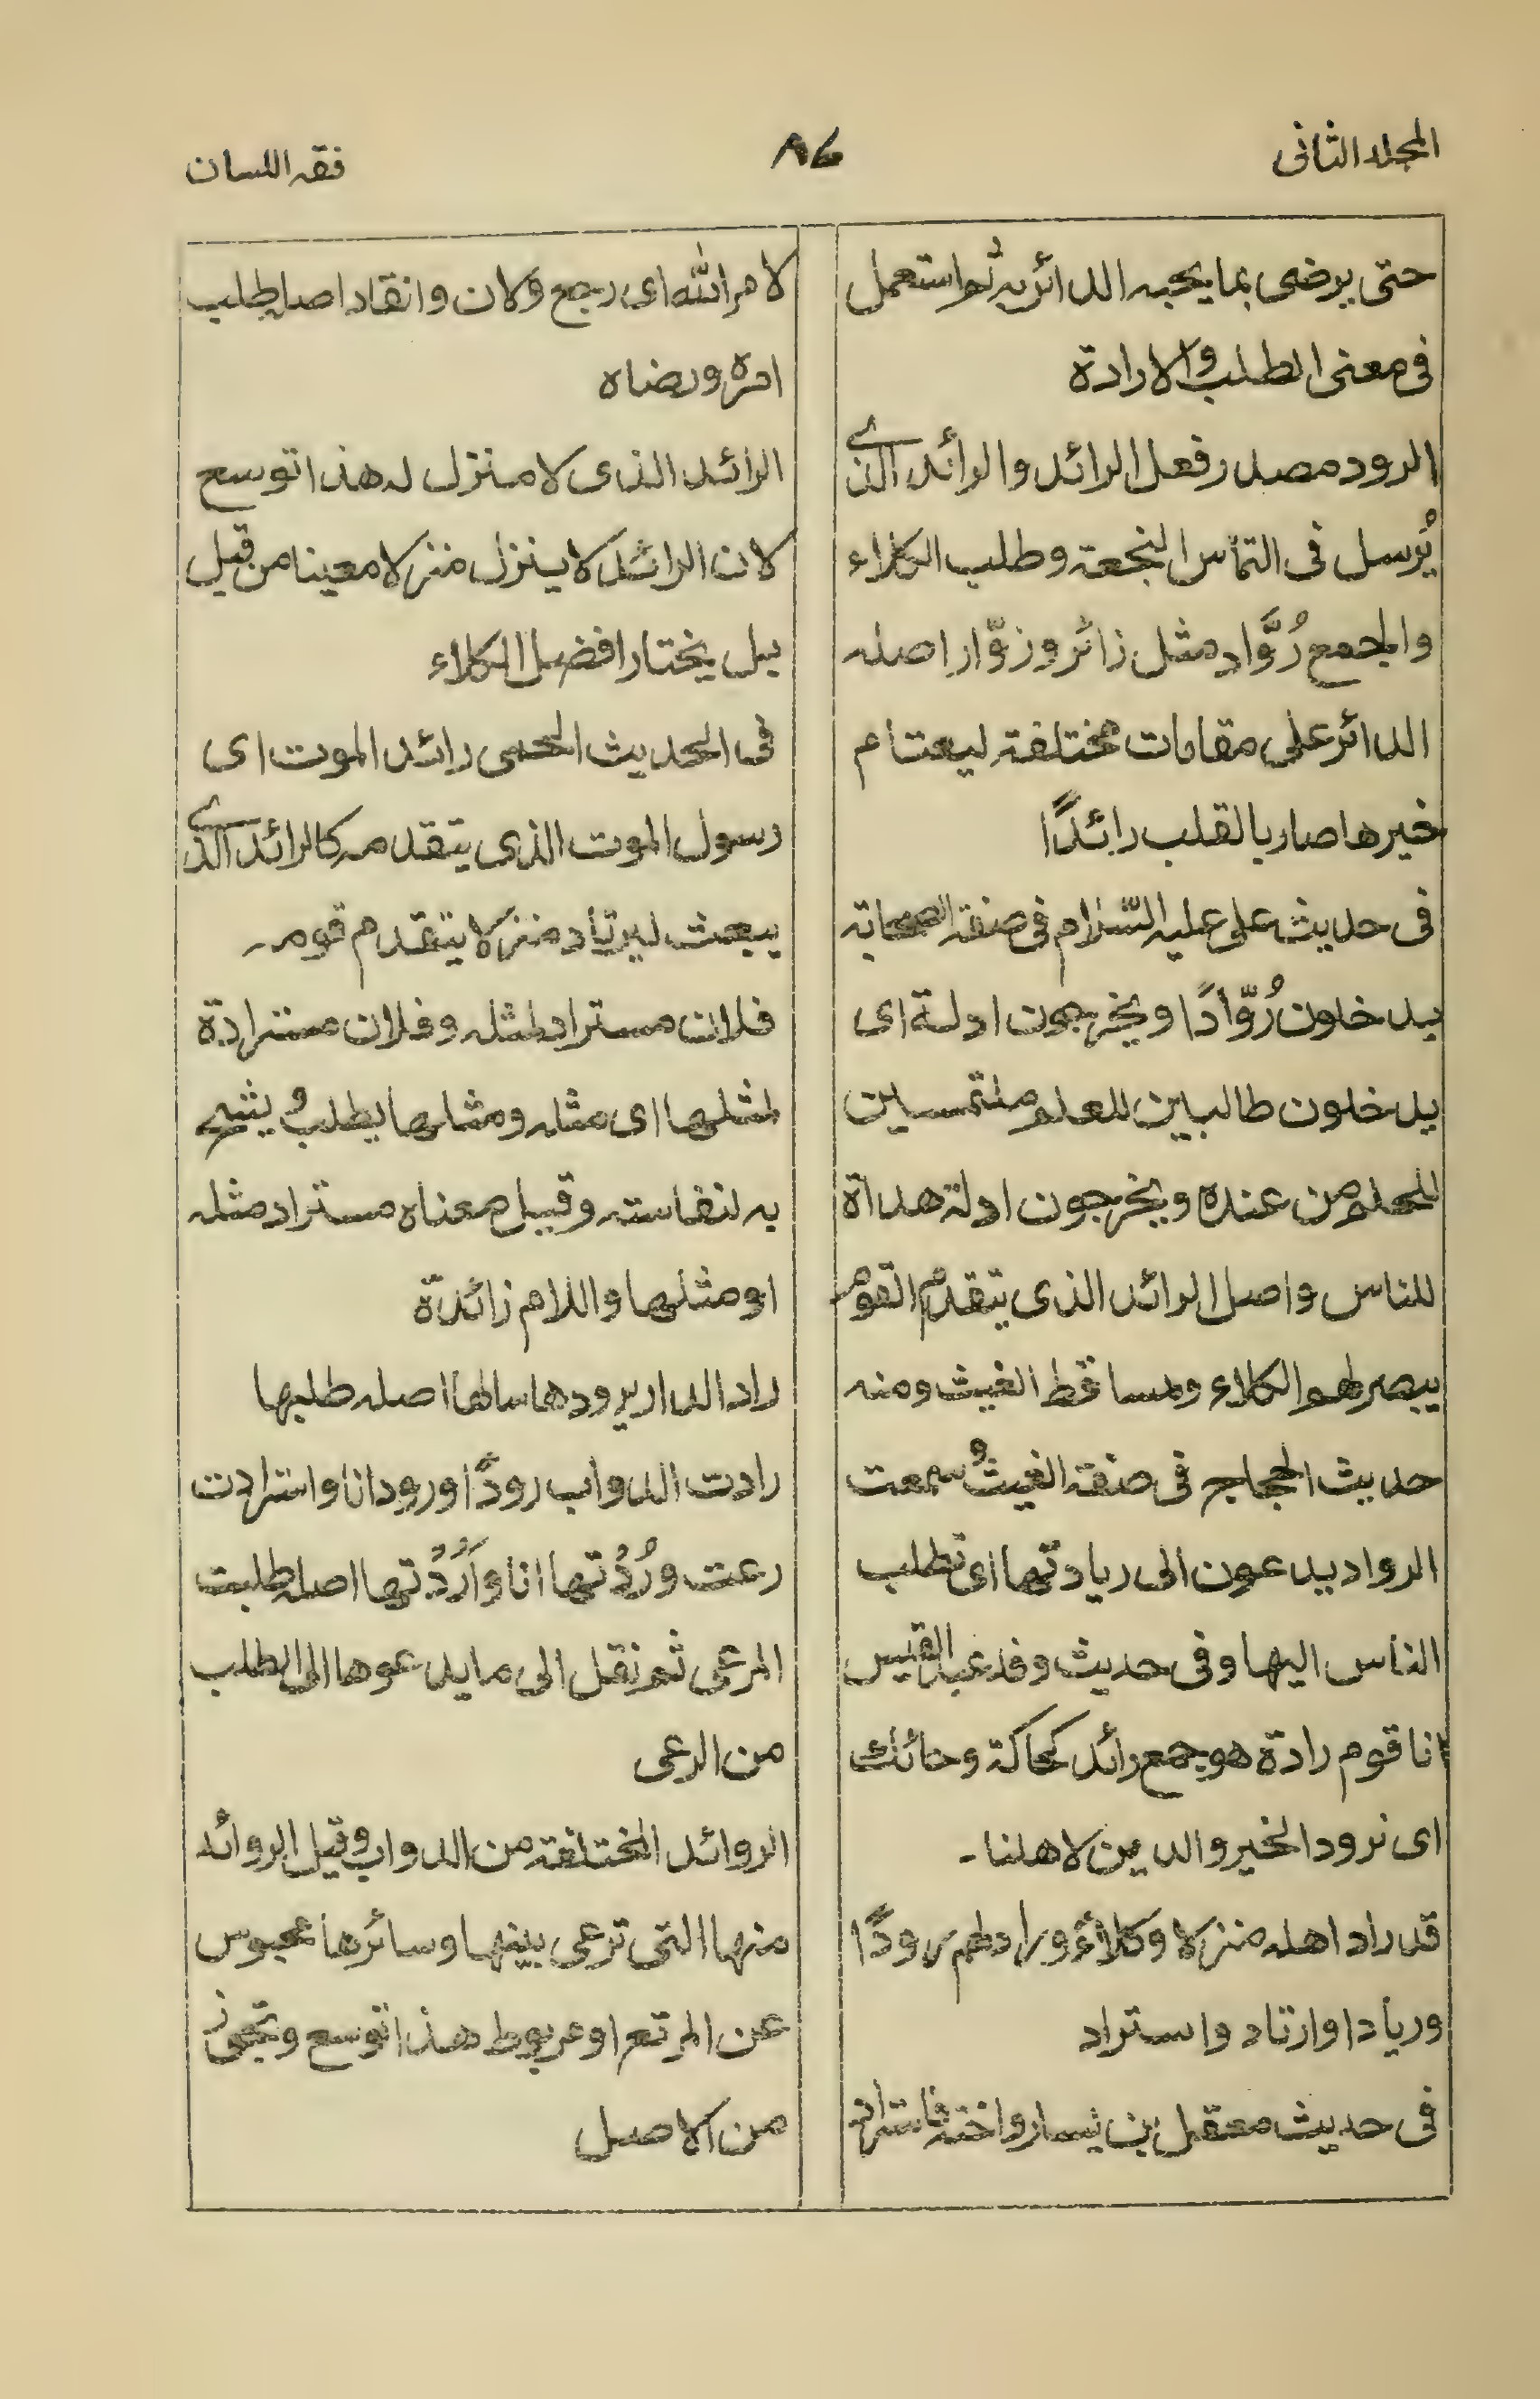 المجلد الثانى
٨٦
فقہ اللسان
حتى يرضى بما يحبہ الدائر بہ ثم استعمل
فى معنى الطلب والارادة
الرود مصدر فعل الرائد والرائد الذى
يُرسل فى التماس النجعۃ وطلب الكلاء
والجمع رُوَّاد مثل زائر وزوّار اصلہ
الدائر على مقامات مختلفۃ ليعتام
خيرها صار بالقلب رائدًا
فى حديث على عليہ السّلام فى صفۃ الصحابۃ
يدخلون رُوّادًا ويخرجون ادلۃ اى
يدخلون طالبين للعلم ملتمسين
للحلم من عنده ويخرجون ادلۃ هداة
للناس واصل الرائد الذى يتقدم القوم
يبصر لهم الكلاء ومساقط الغيث ومنہ
حديث الحجاج فى صفۃ الغيث وسمعت
الرواد يدعون الى ريادتها اى تطلب
الناس اليها وفى حديث وفد عبد القيس
انا قوم رادة هو جمع رائد كحاكۃ وحائك
اى نرود الخير والدين لاهلنا۔
قد راد اهلہ منزلا وكلأ وراد لهم رودًا
وريادا وارتاد واستراد
فى حديث معقل بن يسار واختہ فاستراد
لامر اللّٰه اى رجع ولان وانقاد اصلہ طلب
امره ورضاه
الرائد الذى لا منزل لہ هذا توسع
لان الرائد لا ينزل منزلا معينا من قبل
بل يختار افضل الكلاء
فى الحديث الحمى رائد الموت اى
رسول الموت الذى يتقدمہ كالرائد الذى
يبعث ليرتاد منزلا يتقدم قومہ۔
فلان مستراد لمثلہ وفلان مسترادة
لمثلها اى مثلہ ومثلها يطلب ويشح
بہ لنفاستہ وقيل معناه مستراد مثلہ
او مثلها واللام زائدة
راد الدار يرودها سالها اصلہ طلبها
رادت الدواب رودًا ورودانا واسترادت
رعت ورُدْتها انا وأَرَدْتها اصلہ طلبت
المرعى ثم نقل الى ما يدعوها الى الطلب
من الرعى
الروائد المختلفۃ من الدواب وقيل الروائد
منها التى ترعى بينها وسائرها محبوس
عن المرتع او مربوط هذا توسع وتجوز
من الاصل